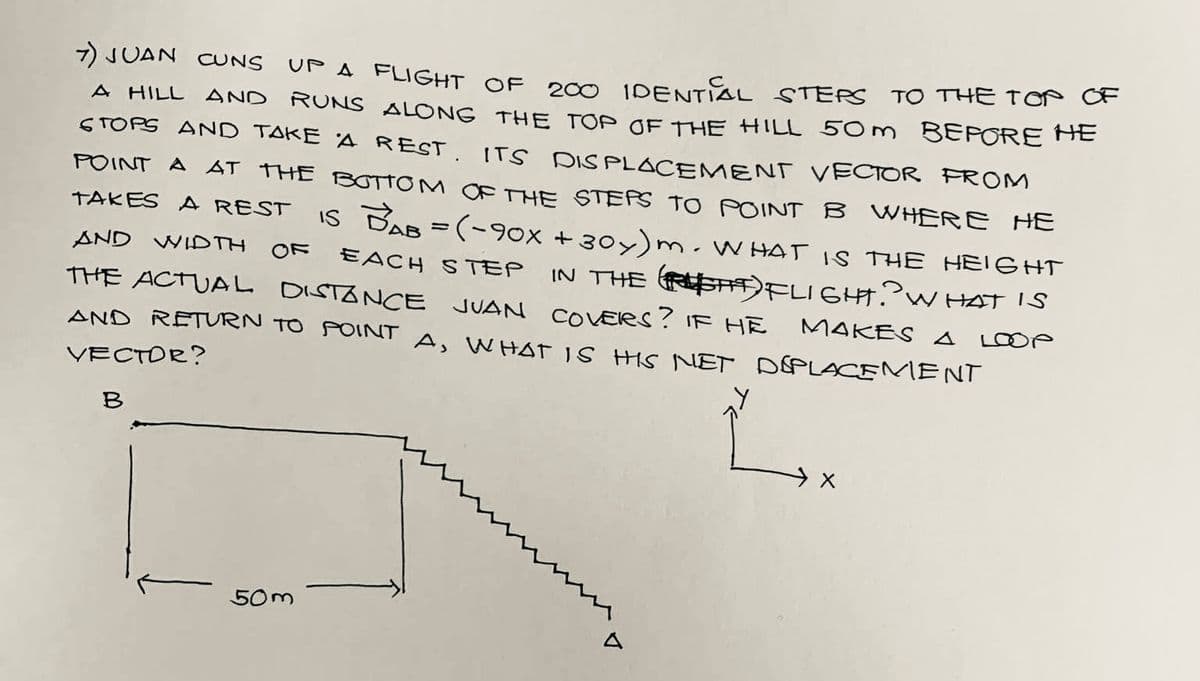 7) JUAN CUNS UP A FLIGHT OF 200 IDENTICAL STEPS TO THE TOP OF
A HILL AND RUNS ALONG THE TOP OF THE HILL 50m BEFORE HE
STOPS AND TAKE A REST. ITS DISPLACEMENT VECTOR FROM
POINT A AT THE BOTTOM OF THE STEPS TO POINT B WHERE HE
TAKES A REST IS D⃗AB = (-90x + 30y)m. WHAT IS THE HEIGHT
AND WIDTH OF EACH STEP IN THE FLIGHT? WHAT IS
THE ACTUAL DISTANCE JUAN COVERS? IF HE MAKES A LOOP
AND RETURN TO POINT A, WHAT IS HIS NET DISPLACEMENT
VECTOR?
B
Y
X
50m
A